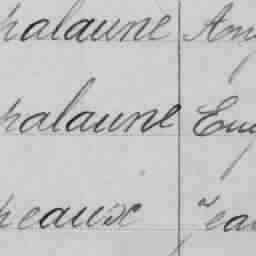 halaune Am
halaune Eug
heaux Jea